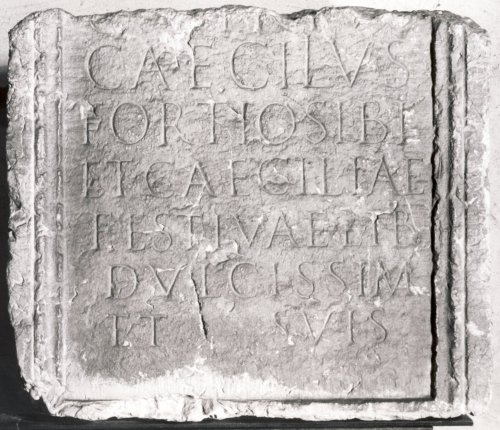 CAECILVS
FORTIOSIBI
ETCAECILIAE
FESTIVAELIB
DVLCISSIM
ET SVIS